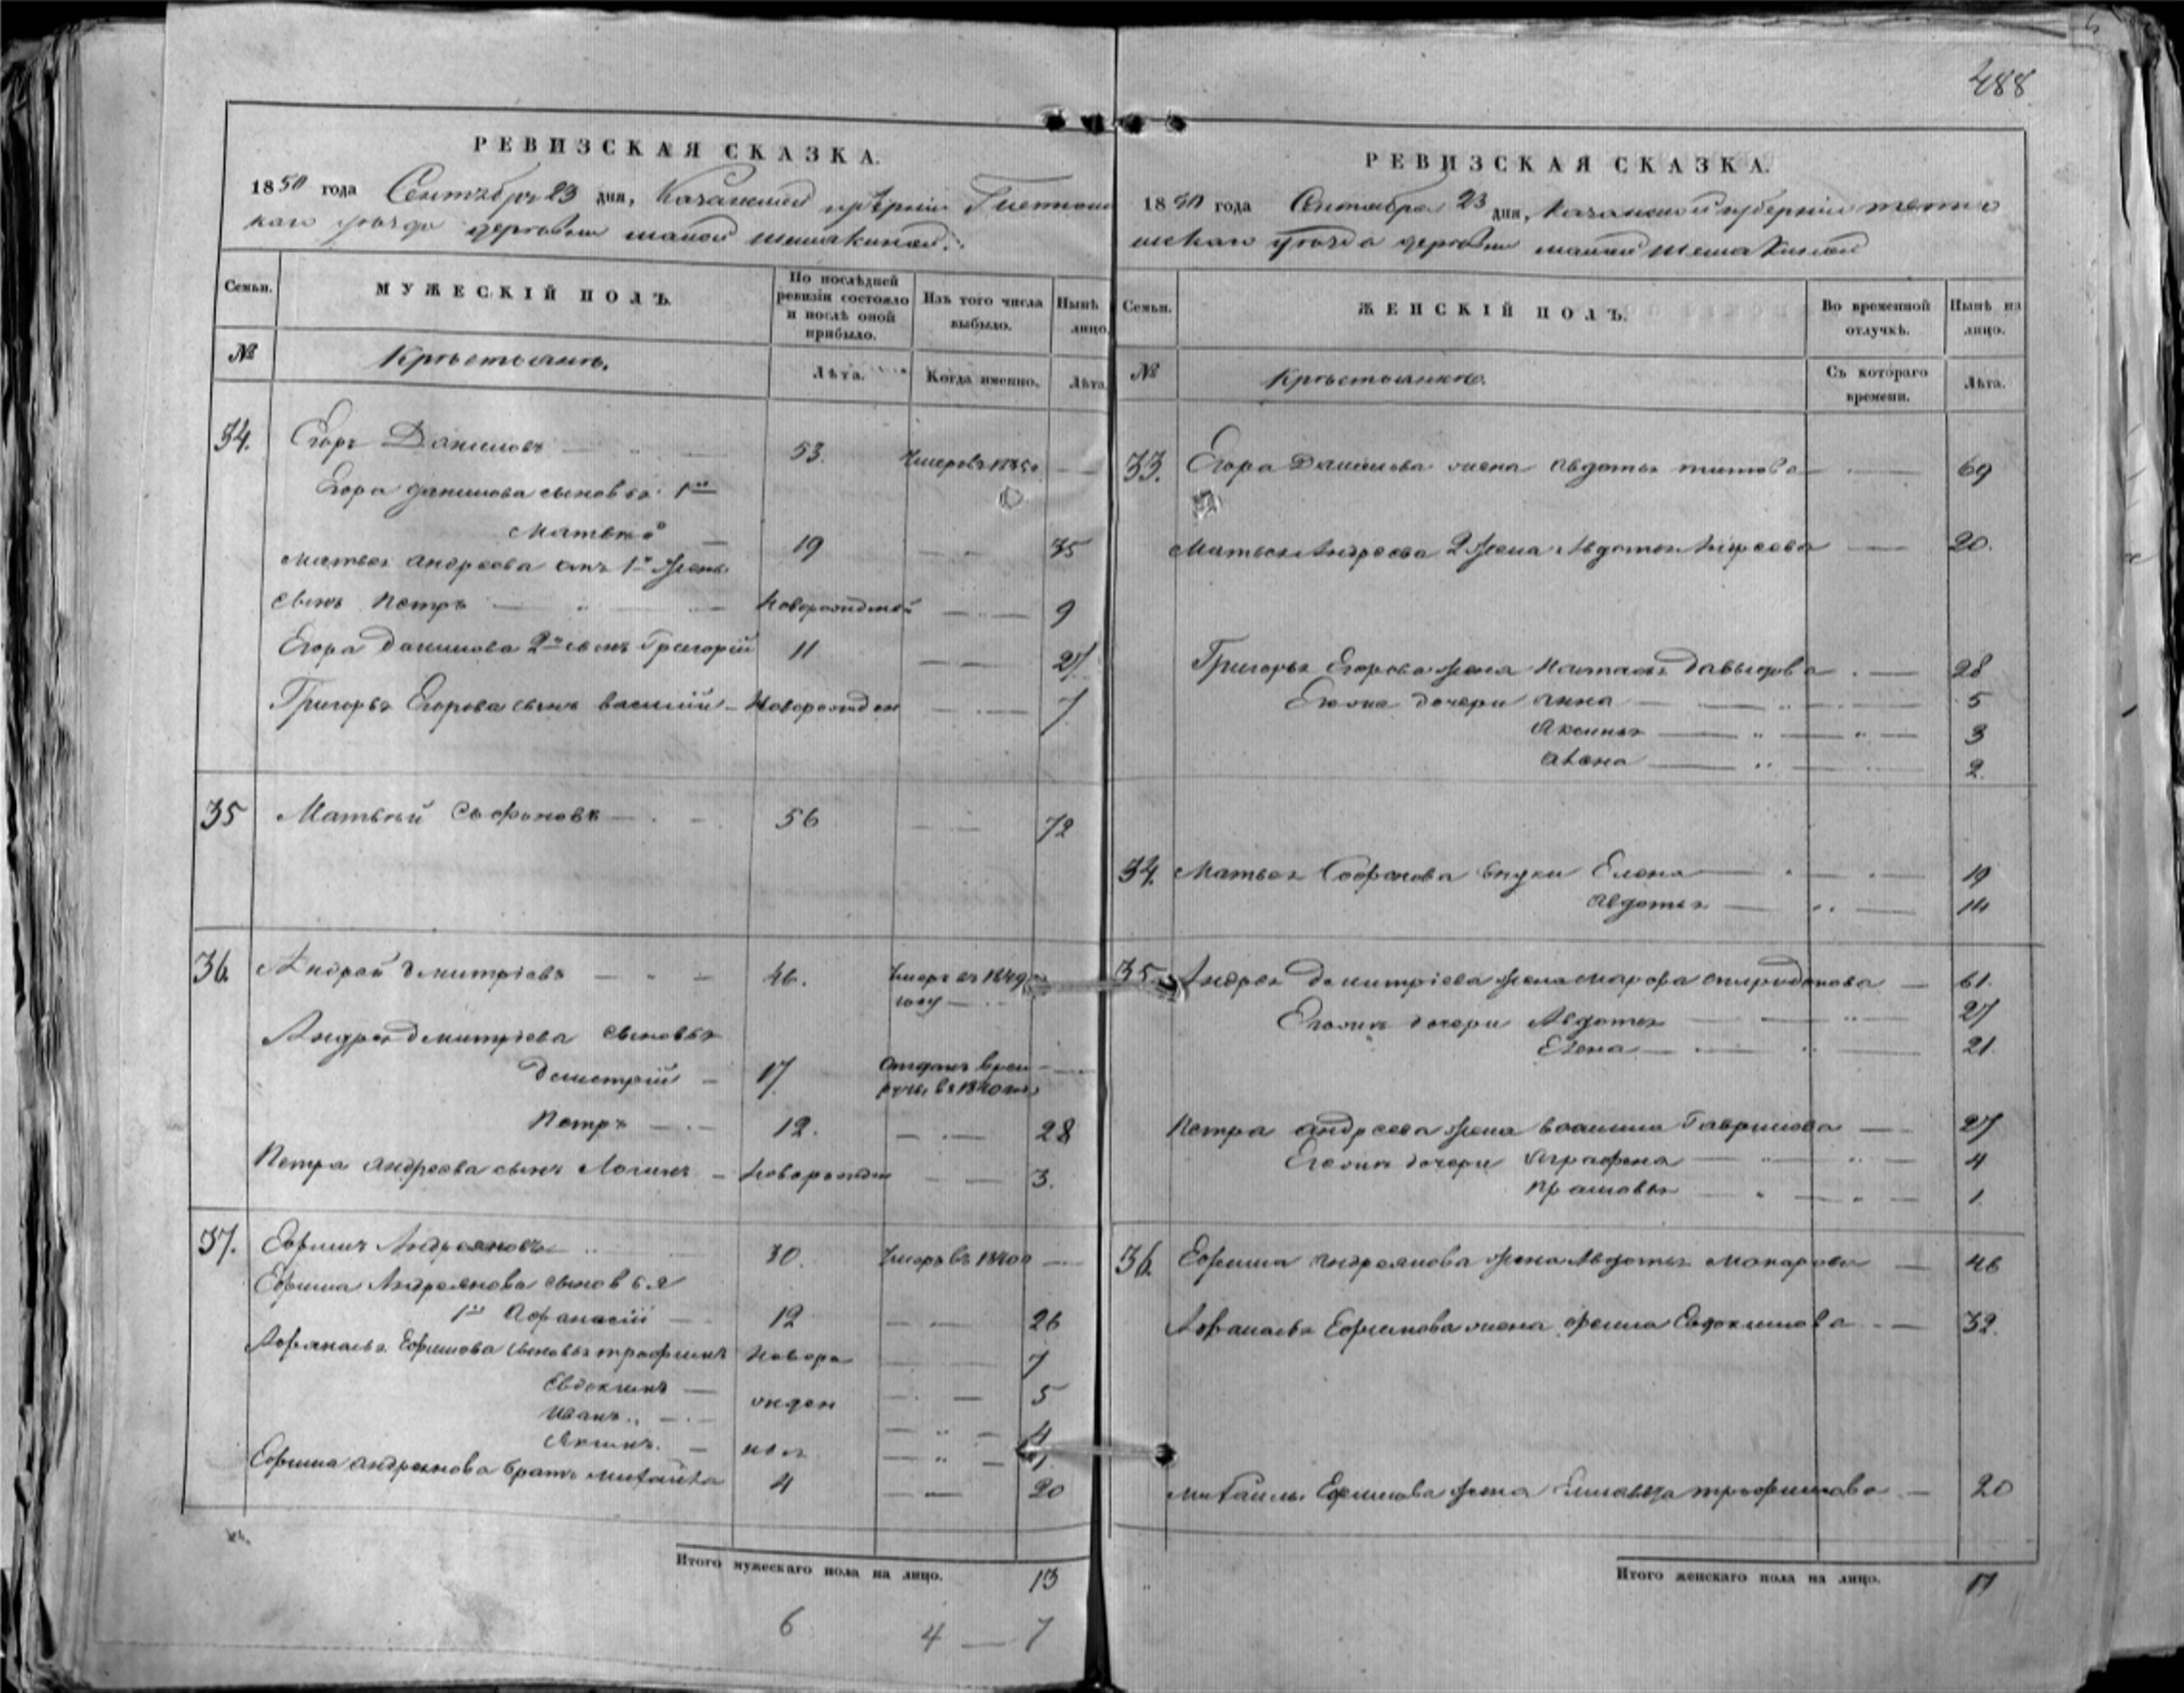 488
РЕВИЗСКАЯ СКАЗКА.
1850 года Сентябрь 23 дня, Казанской губерніи Тетюш
каго уѣзда деревни малой шемякиной.
Семьи.
МУЖЕСКІЙ ПОЛЪ.
По послѣдней ревизіи состояло и послѣ оной прибыло.
Изъ того числа выбыло.
Нынѣ лицо.
№
Крѣстьянѣ.
Лѣта.
Когда именно.
Лѣта.
34. Егоръ Даниловъ 53. Умеръ въ 1835
Егора данилова сыновья 1й
Матвѣй 19 35
Матвея андреева отъ 1й жены
сынъ Петръ новорожденой 9
Егора данилова 2й сынъ Григорій 11 27
Григорья Егорова сынъ василій новорожден 7
35 Матвѣй Софроновъ 56 72
36. Андрей дмитріевъ 46. Умеръ въ 1849
году
Андрея дмитріева сыновья
дмитрій 17 отданъ врек
руты въ 1840
Петръ 12. 28
Петра андреева сынъ Логинъ новорожден 3.
37. Ефимъ Андреяновъ 30. Умеръ въ 1840
Ефима Андреянова сыновья
1й Афанасій 12 26
Афанасья Ефимова сыновья трофимъ новоро 7
Евдокимъ жден 5
Иванъ 4
Якимъ. ной
Ефима андреянова братъ михайла 4 20
Итого мужескаго пола на лицо. 13
6 4 — 7
РЕВИЗСКАЯ СКАЗКА.
1850 года Сентября 23 дня, Казанской губерніи тетю
шскаго уѣзда деревни малой шемякиной
Семьи.
ЖЕНСКІЙ ПОЛЪ.
Во временной отлучкѣ.
Нынѣ на лицо.
№
Крѣстьянкѣ.
Съ котораго времени.
Лѣта.
33. Егора Данилова жена авдотья титова 69
Матвея Андреева 2 жена Авдотья 20.
Григорья Егорова жена Наталья давыдова 28
Егожъ дочери анна 5
Аксинья 3
алена 2.
34. Матвея Софронова внуки Елена 19
авдотья 14
35. Андрея дмитріева жена марфа спиридонова 61.
Егожъ дочери Авдотья 27
Елена 21.
Петра андреева жена василиса Гаврилова 27
Егожъ дочери аграфена 4
прасковья 1
36. Ефима андреянова жена Авдотья макарова 46
Афанасья Ефимова жена Евдокимова 32.
михаилы Ефимова жена Елизавета трофимова 20
Итого женскаго пола на лицо. 17